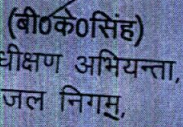 (बी0के0सिंह)
धीक्षण अभियन्ता,
जल निगम,